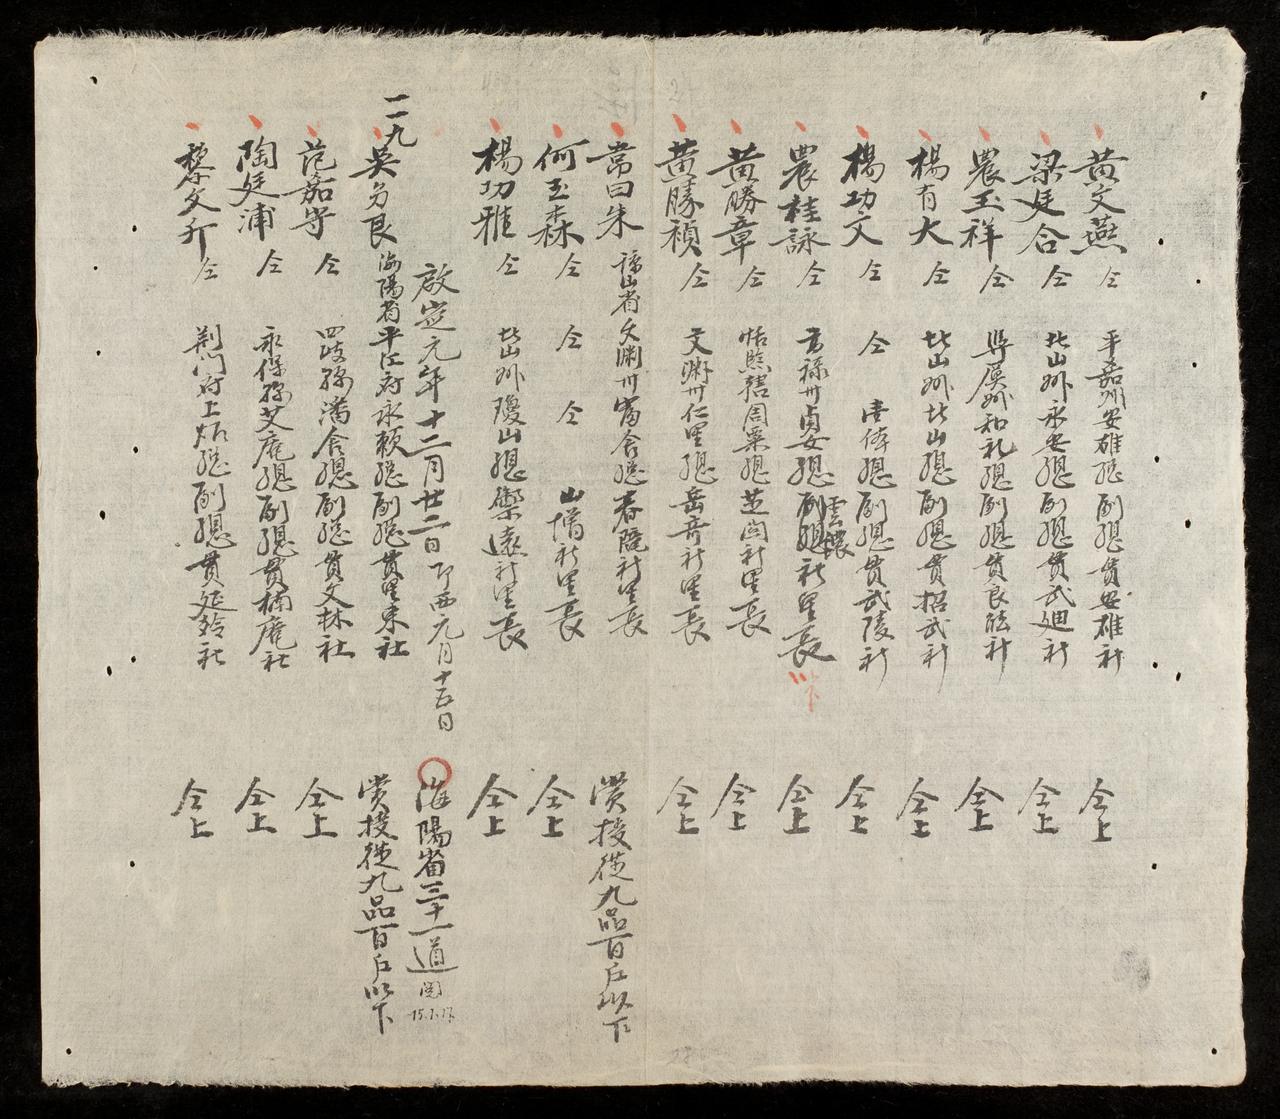 黄文燕 仝 平嘉州安雄總副總貫安雄社 仝上
梁廷合 仝 北山州永安總副總貫武廻社 仝上
農玉祥 仝 州和礼總副總貫良能社 仝上
楊有大 仝 北山州北山總副總貫招武社 仝上
楊功文 仝 仝 總副總貫武陵社 仝上
農桂詠 仝 高祿州貞女總副總雲農社里長 仝上
以下
黄勝章 仝 恬熙轄周粟總芝關社里長 仝上
黄勝禎 仝 文淵州仁里總岳奇社里長 仝上
常曰朱 諒山省文淵州富舍總春院社里長 奨授從九品百戶以下
何玉森 仝 仝 仝 山增社里長 仝上
楊功雅 仝 北山州瓊山總 遠社里長 仝上
啟定元年十二月廿二日即西元月十五日 海陽省三十一道
15.1.17
一九
吳多良 海陽省平江府永賴總副總貫里東社 奨授從九品百戶以下
范嘉守 仝 四岐縣潘舍總副總貫文林社 仝上
陶廷浦 仝 永保縣艾庵總副總貫楠庵社 仝上
黎文升 仝 荆門府上炤總副總貫延鈴社 仝上